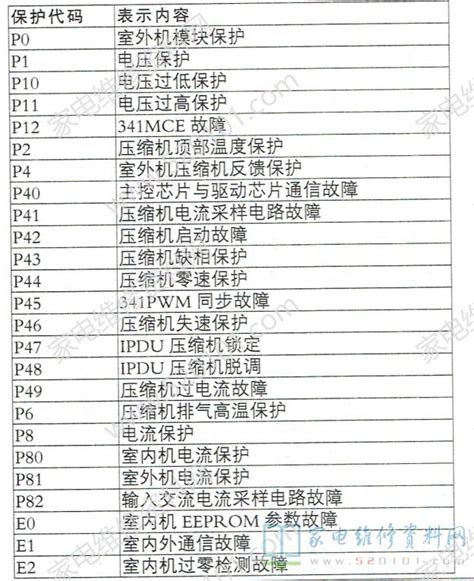 保护代码 表示内容
P0 室外机模块保护
P1 电压保护
P10 电压过低保护
P11 电压过高保护
P12 341MCE 故障
P2 压缩机顶部温度保护
P4 室外机压缩机反馈保护
P40 主控芯片与驱动芯片通信故障
P41 压缩机电流采样电路故障
P42 压缩机启动故障
P43 压缩机缺相保护
P44 压缩机零速保护
P45 341PWM 同步故障
P46 压缩机失速保护
P47 IPDU 压缩机锁定
P48 IPDU 压缩机脱调
P49 压缩机过电流故障
P6 压缩机排气高温保护
P8 电流保护
P80 室内机电流保护
P81 室外机电流保护
P82 输入交流电流采样电路故障
E0 室内机 EEPROM 参数故障
E1 室内外通信故障
E2 室内机过零检测故障
家电维修资料网
www.520101.com